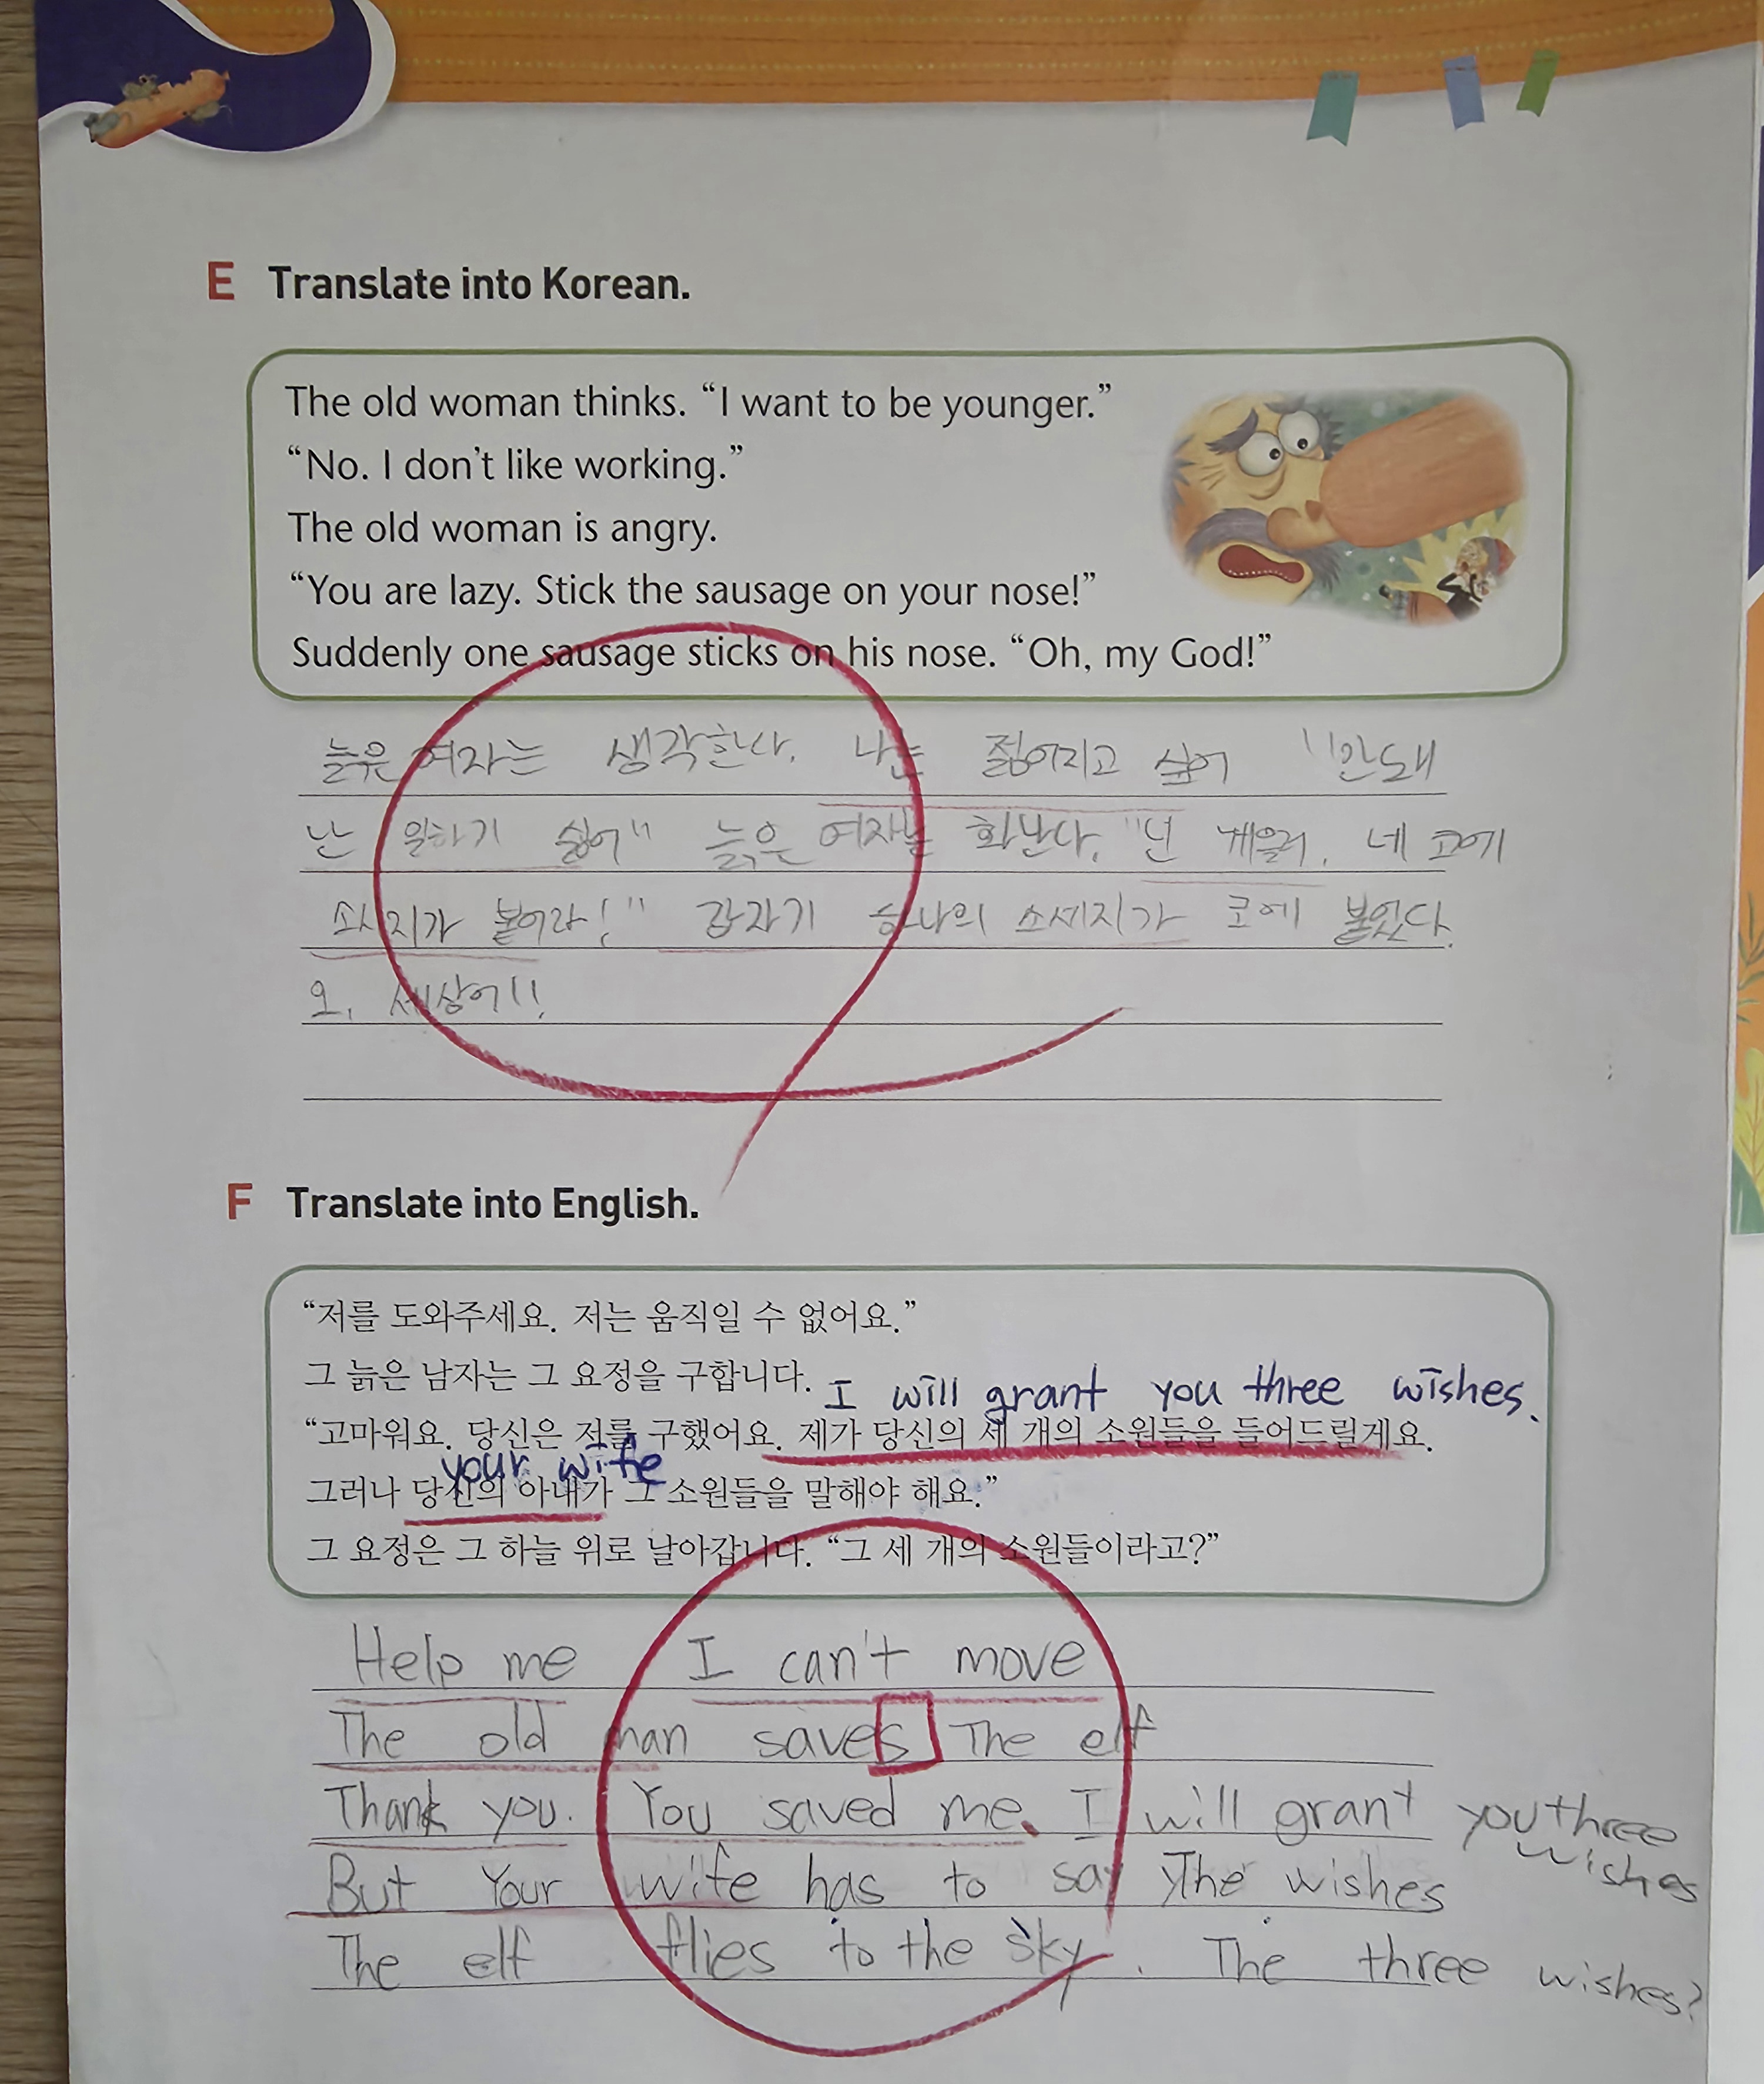 E Translate into Korean.
The old woman thinks. “I want to be younger.”
“No. I don’t like working.”
The old woman is angry.
“You are lazy. Stick the sausage on your nose!”
Suddenly one sausage sticks on his nose. “Oh, my God!”
늙은 여자는 생각한다. 나는 젊어지고 싶어 "안돼
난 일하기 싫어" 늙은 여자는 화난다. "넌 게을러. 네 코에
소시지가 붙어라!" 갑자기 하나의 소세지가 코에 붙었다.
오, 세상에!!
F Translate into English.
“저를 도와주세요. 저는 움직일 수 없어요.”
그 늙은 남자는 그 요정을 구합니다.
I will grant you three wishes.
“고마워요. 당신은 저를 구했어요. 제가 당신의 세 개의 소원들을 들어드릴게요.
your wife
그러나 당신의 아내가 그 소원들을 말해야 해요.”
그 요정은 그 하늘 위로 날아갑니다. “그 세 개의 소원들이라고?”
Help me I can't move
The old man saves The elf
Thank you. You saved me. I will grant you three
wishes
But Your wife has to say The wishes
The elf flies to the sky. The three wishes?